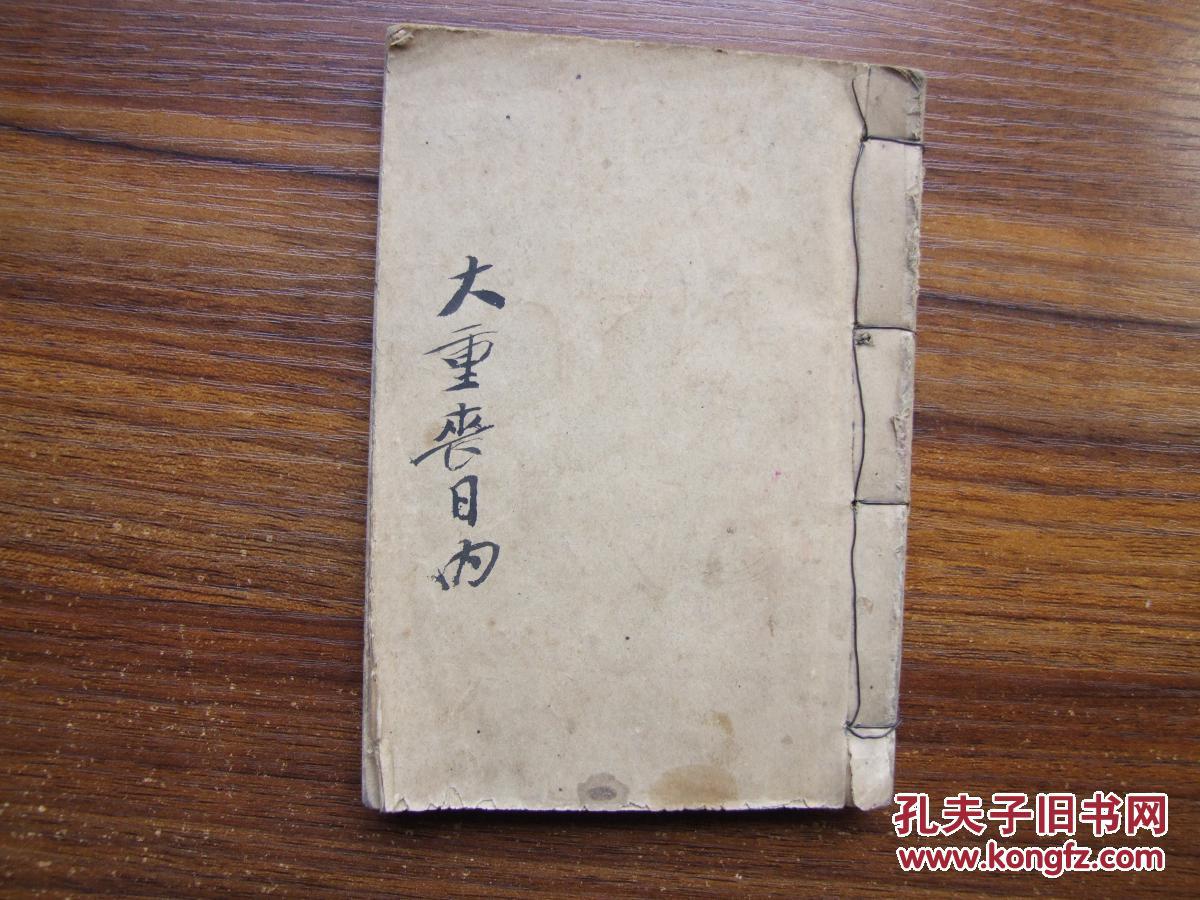 大重喪日内
孔夫子旧书网
www.kongfz.com